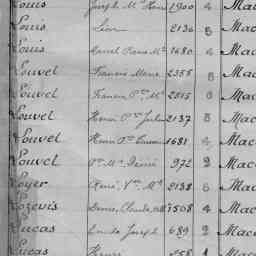 Louis Joseph Mie Henri 1900 4 Mac
Louis Léon 2136 5 Mac
Louis Marcel Pierre Mie 1680 4 Mac
Louvel Francis Marie 2355 5 Mac
Louvel Francis Pre Mie 2215 6 Mac
Louvel Henri Pre Julien 2137 5 Mac
Louvel Henri Pre 1681 4 Mac
Louvel Pre Mie 972 2 Mac
Loyer René Mie 2138 5 Mac
Lozevis Denis, Claude 1508 4 Maca
Lucas Joseph 689 2 Mac
Lucas Henri 1 Mac